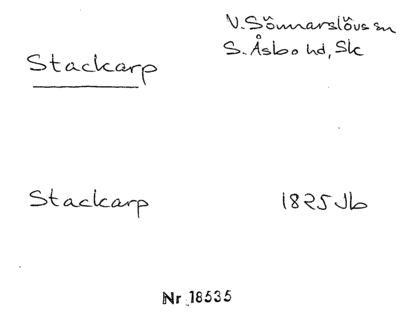 V. Sönnarslövs sn
S. Åsbo hd, Sk
Stackarp
Stackarp 1825 Jb
Nr 18535